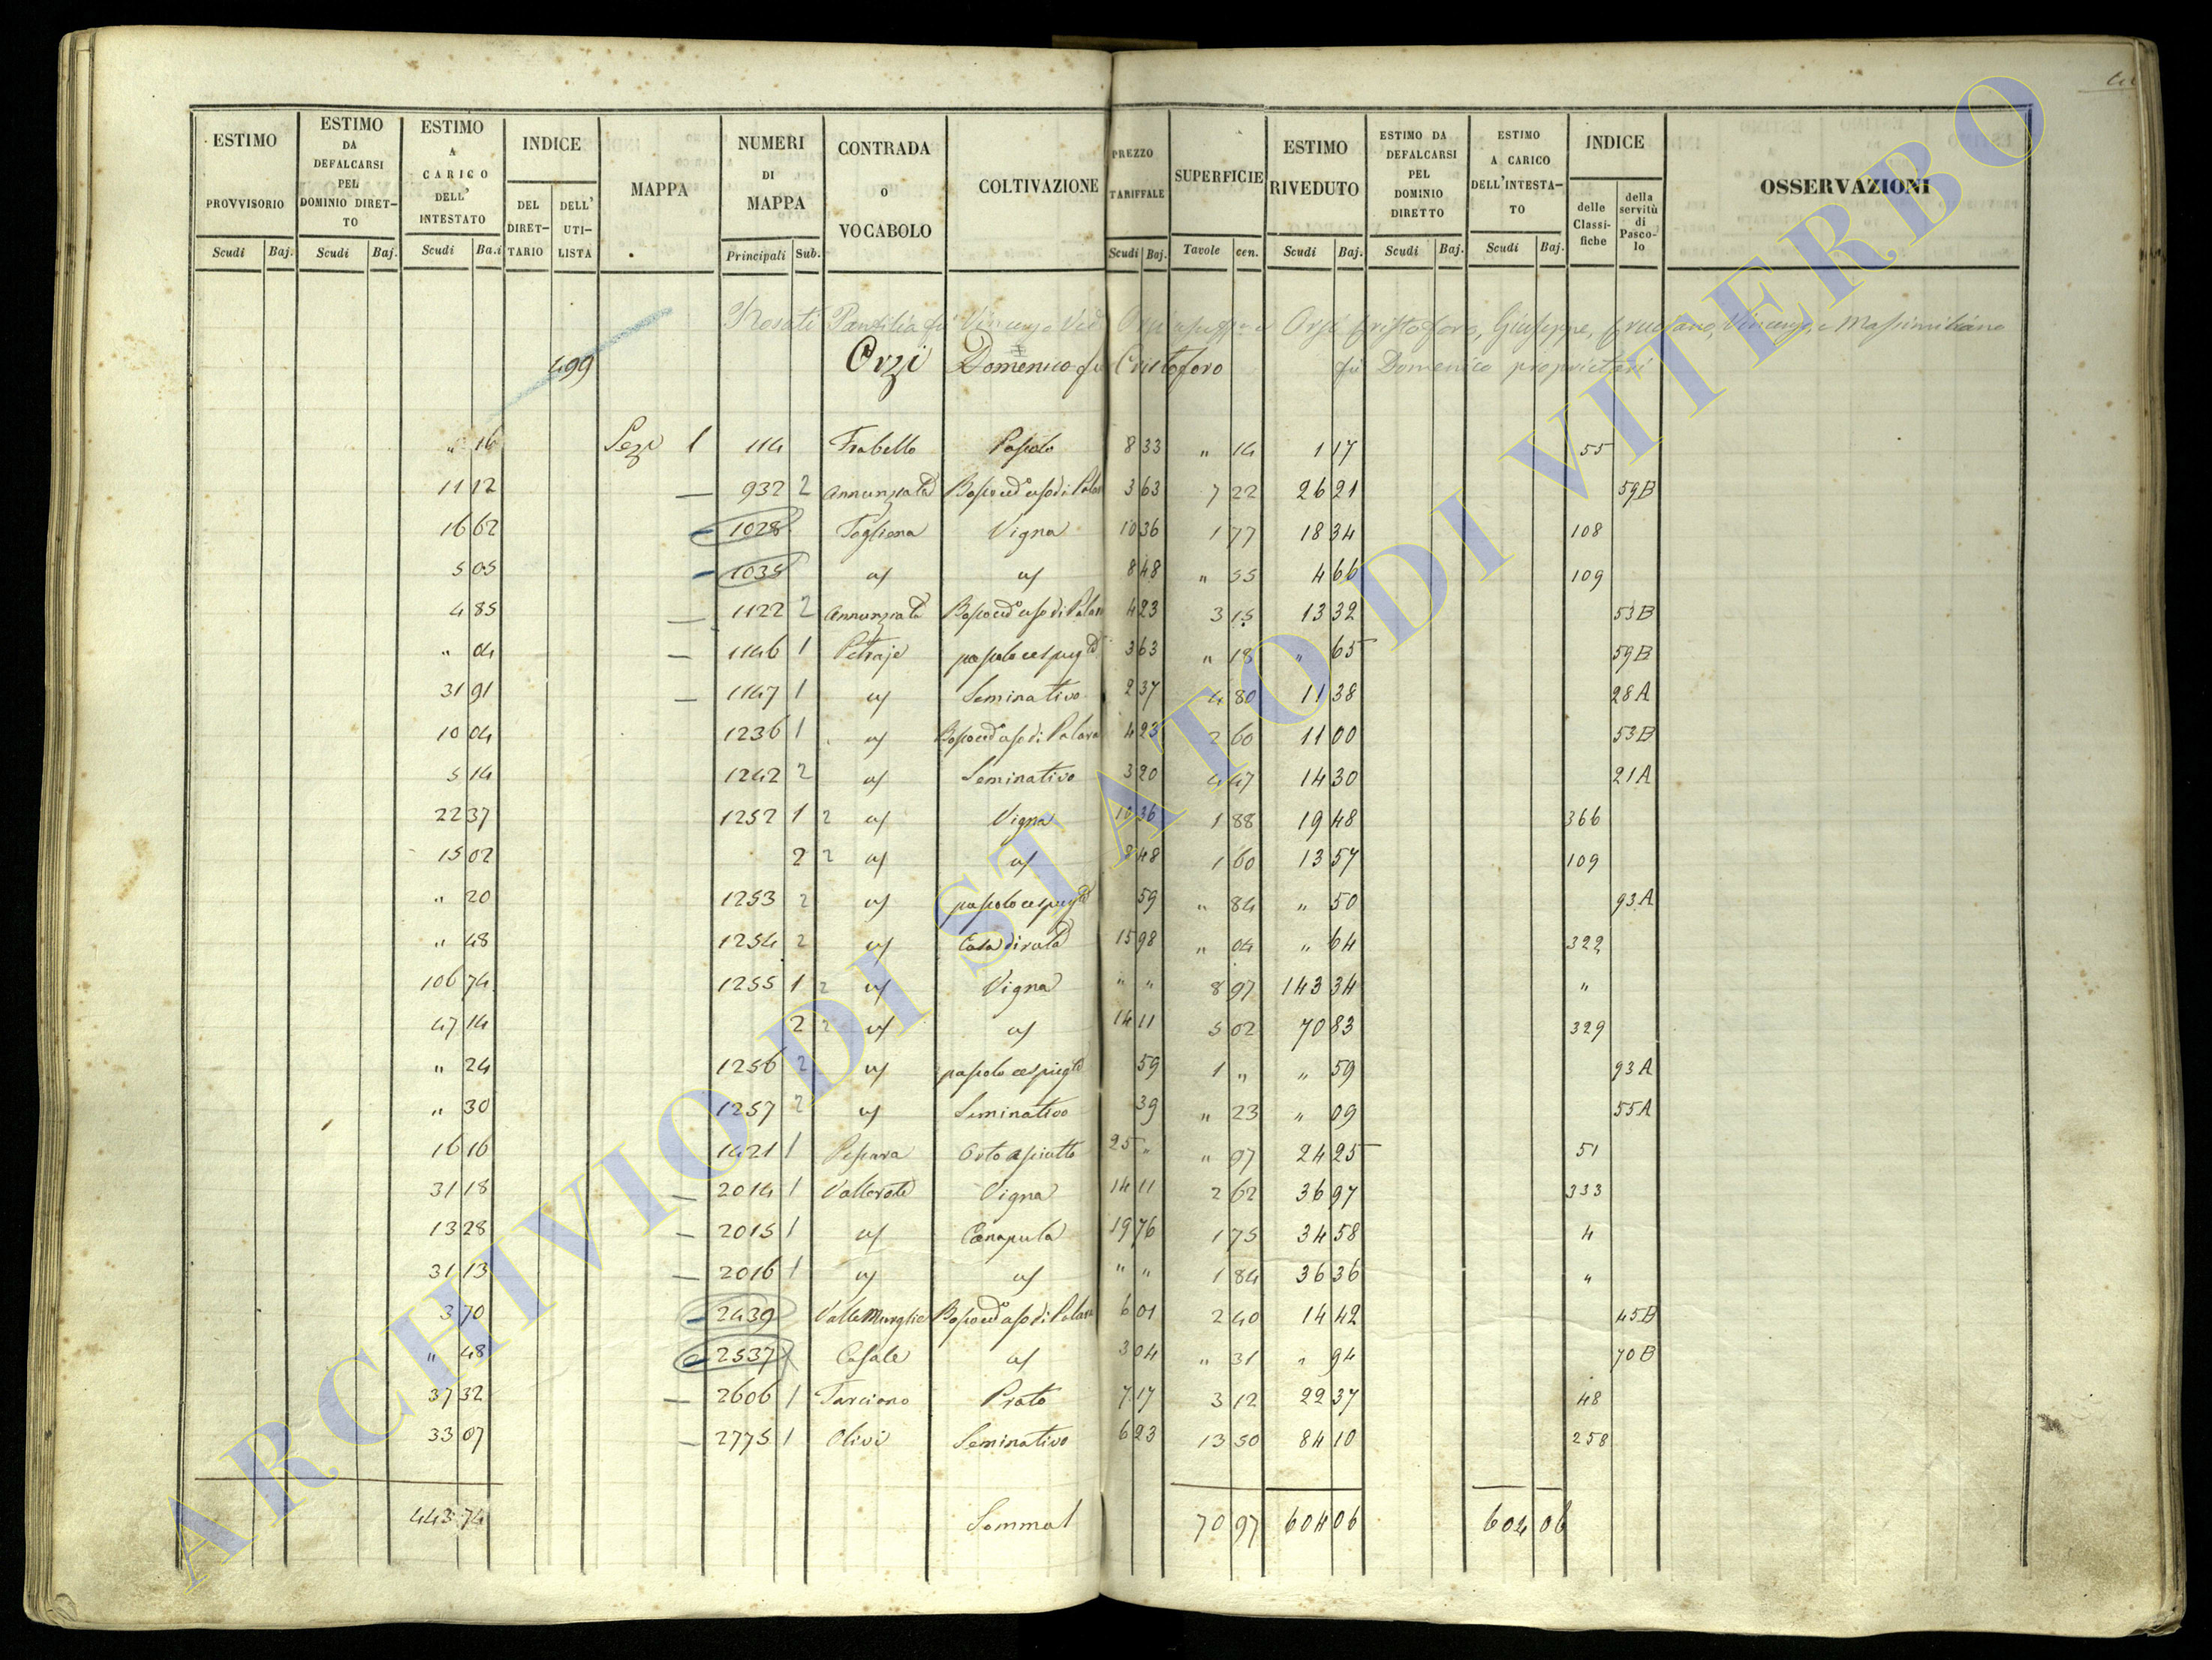 ESTIMO PROVVISORIO Scudi Baj.
ESTIMO DA DEFALCARSI PEL DOMINIO DIRET-TO Scudi Baj.
ESTIMO A CARICO DELL' INTESTATO Scudi Ba.i
INDICE DEL DIRET-TARIO DELL' UTI-LISTA
MAPPA
NUMERI DI MAPPA Principali Sub.
CONTRADA o VOCABOLO
COLTIVAZIONE
PREZZO TARIFFALE Scudi Baj.
SUPERFICIE Tavole cen.
ESTIMO RIVEDUTO Scudi Baj.
ESTIMO DA DEFALCARSI PEL DOMINIO DIRETTO Scudi Baj.
ESTIMO A CARICO DELL'INTESTA-TO Scudi Baj.
INDICE delle Classi-fiche della servitù di Pasco-lo
OSSERVAZIONI
Rosati Panfilia fu Vincenzo Ved Orzi Orzi Cristoforo, Giuseppe, Vincenzo, e Massimiliano
499 Orzi Domenico fu Cristoforo fu Domenico proprietari
" 14 Sez 1 114 Frabello Pascolo 8 33 " 14 1 17 55
11 12 — 932 2 Annunziata Bosco ced° uso di Palar 3 63 7 22 26 21 59B
16 62 — 1028 Fogliona Vigna 10 36 1 77 18 34 108
5 05 — 1035 a/ a/ 8 48 " 55 4 66 109
4 85 — 1122 2 Annunziata Bosco ced° uso di Palar 4 23 3 15 13 32 53B
" 04 — 1146 1 Petraje pascolo cespugto 3 63 " 18 " 65 59B
31 91 — 1147 1 a/ Seminativo 2 37 4 80 11 38 28A
10 04 1236 1 a/ Bosco ced° uso di Palara 4 23 2 60 11 00 53B
5 14 1242 2 a/ Seminativo 3 20 4 47 14 30 21A
22 37 1252 1 2 a/ Vigna 10 36 1 88 19 48 366
15 02 2 2 a/ a/ 8 48 1 60 13 57 109
" 20 1253 2 a/ pascolo cespugto 59 " 84 " 50 93A
" 48 1254 2 a/ Casa diruta 15 98 " 04 " 64 322
106 74 1255 1 2 a/ Vigna " " 8 97 143 34 "
47 14 2 2 a/ a/ 14 11 5 02 70 83 329
" 24 1256 2 a/ pascolo cespugto 59 1 " " 59 93A
" 30 1257 2 a/ Seminativo 39 " 23 " 09 55A
16 16 1421 1 Pescara Orto asciutto 25 " " 97 24 25 51
31 18 — 2014 1 Vallerota Vigna 14 11 2 62 36 97 333
13 28 — 2015 1 a/ Canapula 19 76 1 75 34 58 4
31 13 — 2016 1 a/ a/ " " 1 84 36 36 "
3 70 — 2439 Valle Murglie Bosco ced° uso di Palara 6 01 2 40 14 42 45B
" 48 — 2537 Casale a/ 3 04 " 31 " 94 70B
37 32 — 2606 1 Tarciano Prato 7 17 3 12 22 37 48
33 07 — 2775 1 Olivi Seminativo 6 23 13 50 84 10 258
443 74 Somma 70 97 604 06 604 06
ARCHIVIO DI STATO DI VITERBO